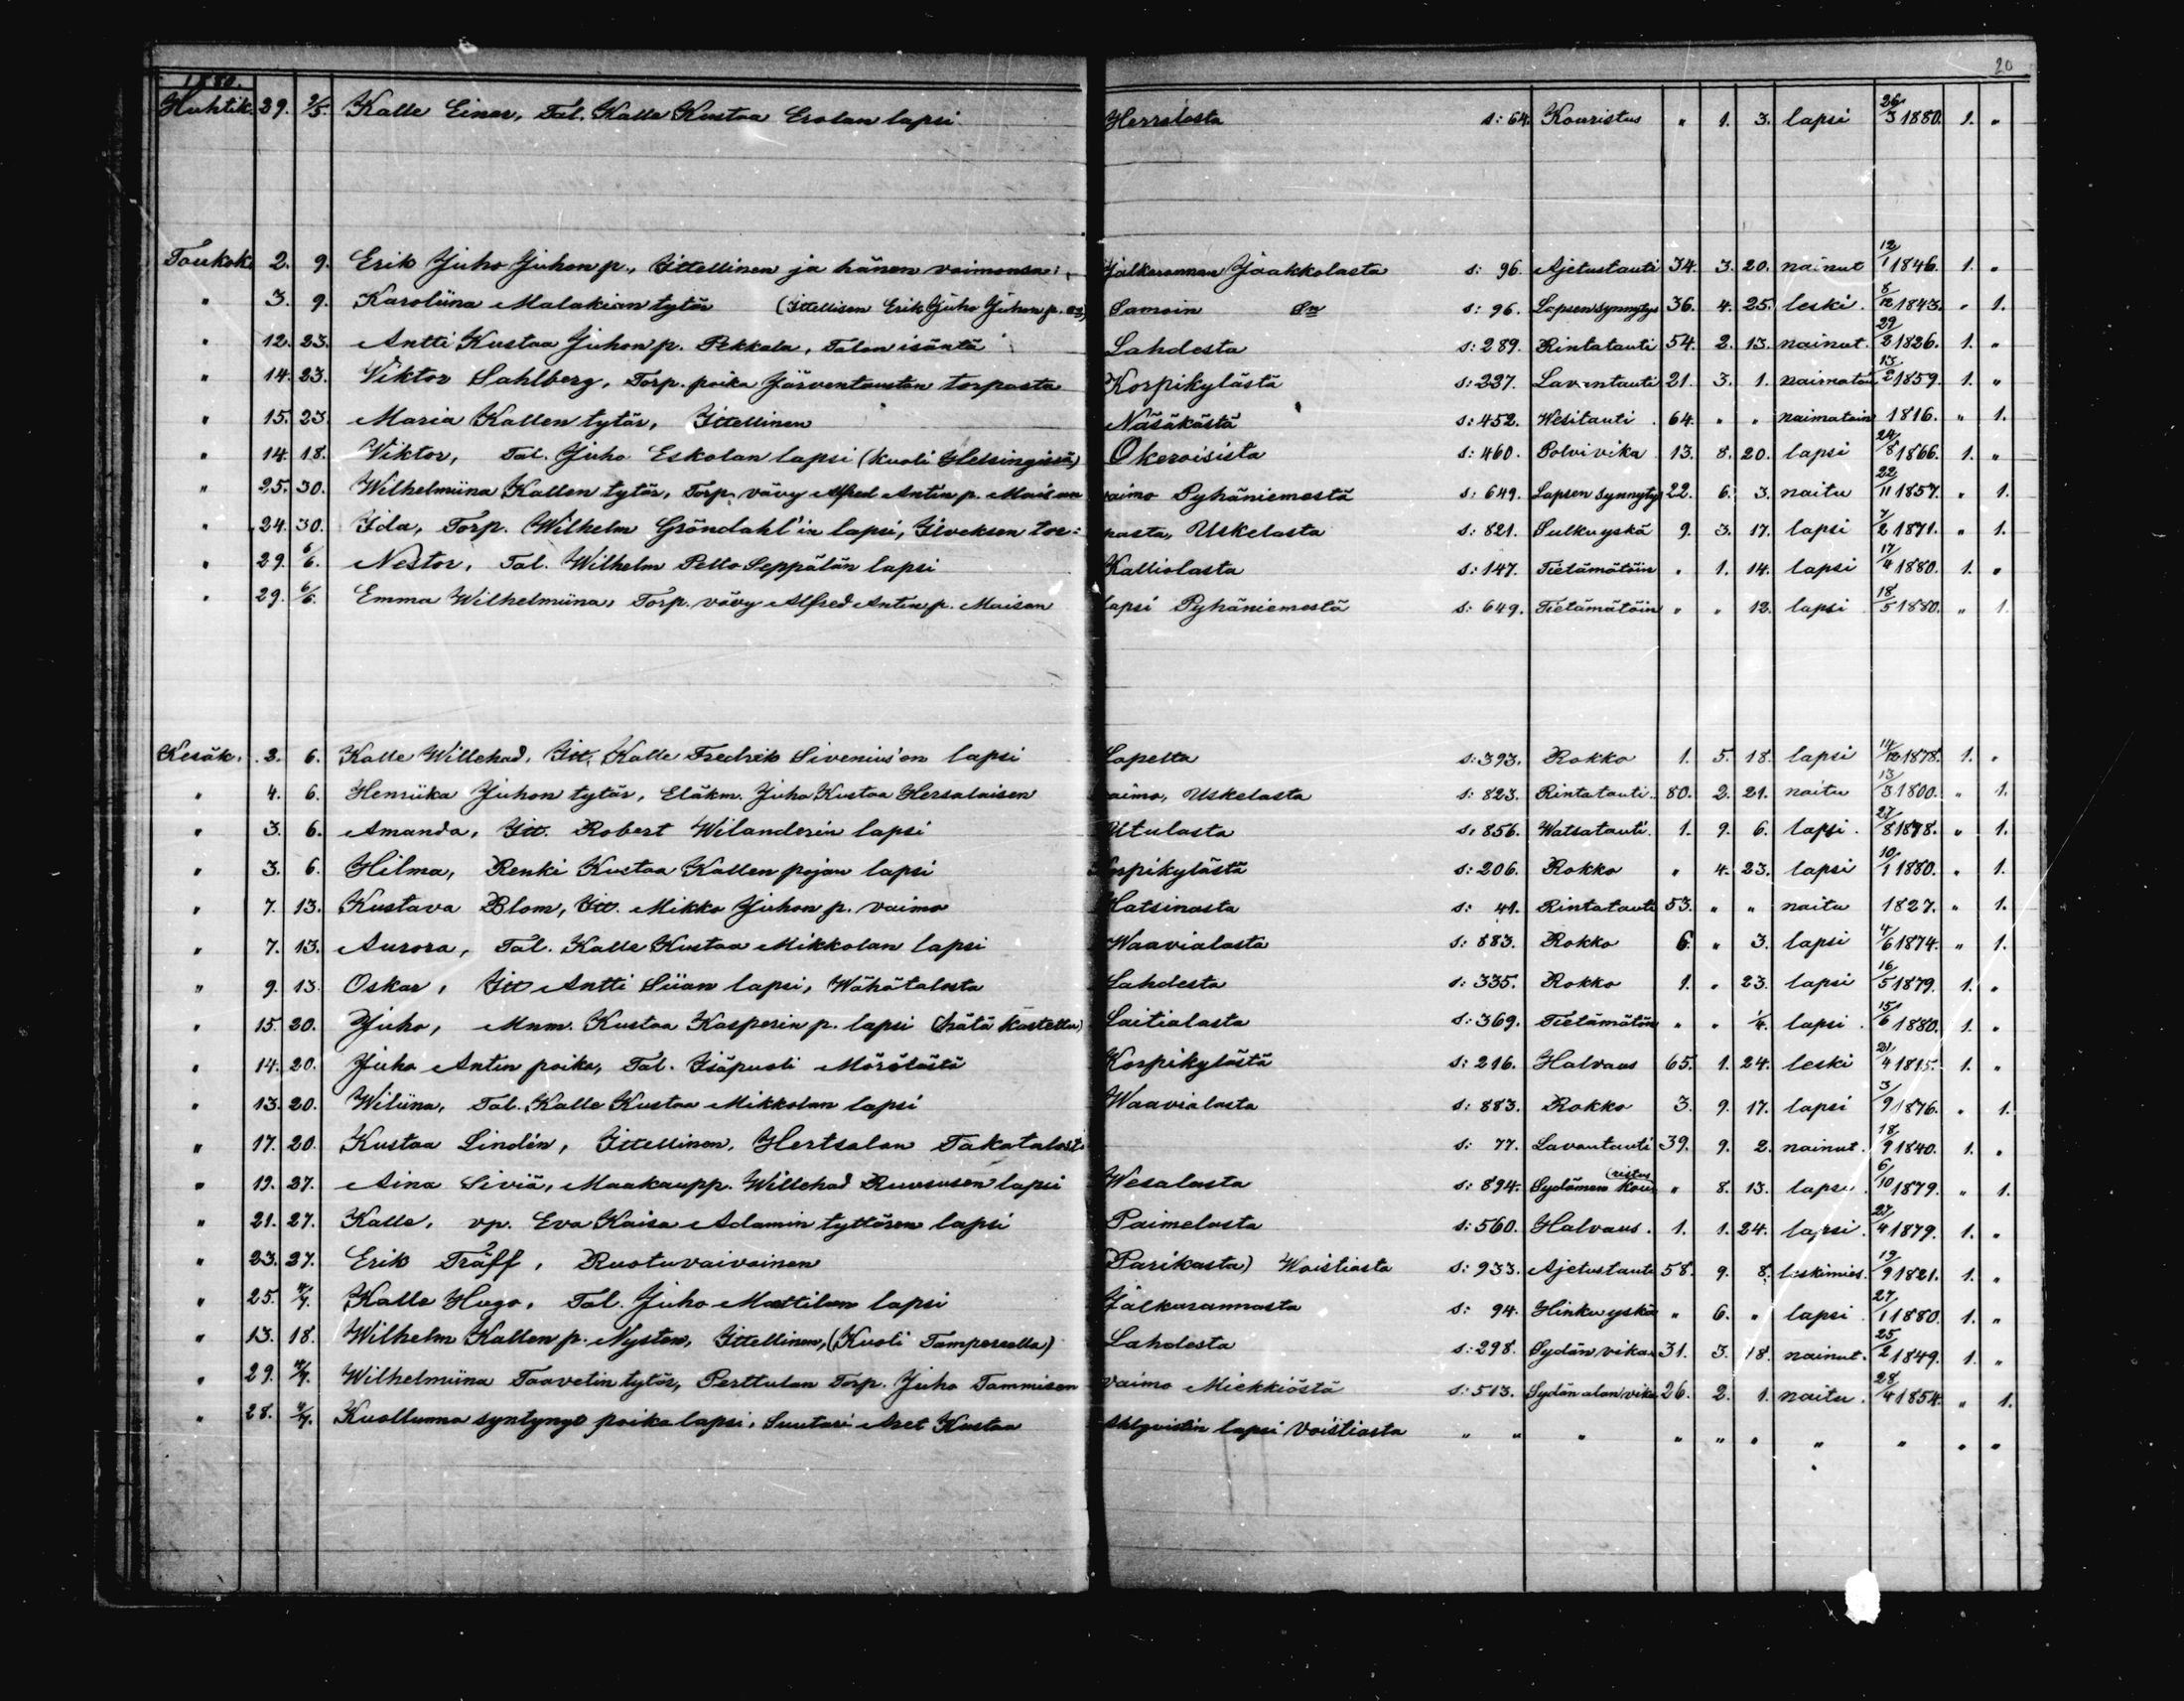 20
1880.
Huhtik. 29. 9/5. Kalle Einar, Tal. Kalle Kustaa Erolan lapsi Herralasta s: 64. Kouristus " 1. 3. lapsi 26/3 1880. 1. "
Toukok. 2. 9. Erik Juho Juhon p., Ittellinen ja hänen vaimonsa: Jalkarannan Jaakkolasta s: 96. Ajetustauti 34. 3. 20. nainut 12/1 1846. 1. "
" 3. 9. Karoliina Malakian tytär (Ittellisen Erik Juho Juhon p. Samoin s: 96. Lapsensynnytys 36. 4. 25. leski. 8/12 1843. " 1.
" 12. 23. Antti Kustaa Juhon p. Pekkala, Talon isäntä Lahdesta s: 289. Rintatauti 54. 2. 13. nainut. 29/2 1826. 1. "
" 14. 23. Viktor Sahlberg, Torp. poika Järventaustan torpasta Korpikylästä s: 237. Lavantauti 21. 3. 1. naimatoin 13/2 1859. 1. "
" 15. 23. Maria Kallen tytär, Ittellinen Näsäkästä s: 452. Wesitauti. 64. " " naimatoin 1816. " 1.
" 14. 18. Viktor, Tal. Juho Eskolan lapsi (kuoli Helsingissä) Okeroisista s: 460. Polvivika 13. 8. 20. lapsi 24/8 1866. 1. "
" 25. 30. Wilhelmiina Kallen tytär, Torp. vävy Alfred Antin p. Maisan vaimo Pyhäniemestä s: 649. Lapsen synnytys 22. 6. 3. naitu 22/11 1857. " 1.
" 24. 30. Ida, Torp. Wilhelm Gröndahl'in lapsi, Iiveksen tor: pasta, Uskelasta s: 821. Sulkuyskä 9. 3. 17. lapsi 7/2 1871. " 1.
" 29. 6/6. Nestor, Tal. Wilhelm Pello Seppälän lapsi Kalliolasta s: 147. Tietämätöin " 1. 14. lapsi 17/4 1880. 1. "
" 29. 6/6. Emma Wilhelmiina, Torp. vävy Alfred Antin p. Maisan lapsi Pyhäniemestä s: 649. Tietämätöin " " 12. lapsi 18/5 1880. " 1.
Kesäk. 2. 6. Kalle Willehad, Itt. Kalle Fredrik Sivenius'en lapsi Lapelta s: 393. Rokko 1. 5. 18. lapsi 14/12 1878. 1. "
" 4. 6. Henriika Juhon tytär, Eläkm. Juho Kustaa Hersalaisen vaimo, Uskelasta s: 823. Rintatauti. 80. 2. 21. naitu 13/3 1800. " 1.
" 3. 6. Amanda, Itt. Robert Wilanderin lapsi Utulasta s: 856. Watsatauti. 1. 9. 6. lapsi. 27/8 1878. " 1.
" 3. 6. Hilma, Renki Kustaa Kallen pojan lapsi Korpikylästä s: 206. Rokko " 4. 23. lapsi 10/1 1880. " 1.
" 7. 13. Kustava Blom, Itt. Mikko Juhon p. vaimo Hatsinasta s: 41. Rintatauti 53. " " naitu 1827. " 1.
" 7. 13. Aurora, Tal. Kalle Kustaa Mikkolan lapsi Waavialasta s: 883. Rokko 6. " 3. lapsi 4/6 1874. " 1.
" 9. 13. Oskar, Itt Antti Siian lapsi, Wähätalosta Lahdesta s: 335. Rokko 1. " 23. lapsi 16/5 1879. 1. "
" 15. 20. Juho, Mnm. Kustaa Kasperin p. lapsi (hätä kastettu) Laitialasta s: 369. Tietämätön " " 1/4. lapsi. 15/6 1880. 1. "
" 14. 20. Juho Antin poika, Tal. Isäpuoli Mörölästä Korpikylästä s: 216. Halvaus 65. 1. 24. leski 21/4 1815. 1. "
" 13. 20. Wiliina, Tal. Kalle Kustaa Mikkolan lapsi Waavialasta s: 883. Rokko 3. 9. 17. lapsi 3/9 1876. " 1.
" 17. 20. Kustaa Lindén, Ittellinen, Hertsalan Takatalosta s: 77. Lavantauti 39. 9. 2. nainut. 18/9 1840. 1. "
" 19. 27. Aina Siviä, Maakaupp. Willehad Ruususen lapsi Wesalasta s: 894. Sydämen kou (ristus " 8. 13. lapsi. 6/10 1879. " 1.
" 21. 27. Kalle, vp. Eva Kaisa Adamin tyttären lapsi Paimelasta s: 560. Halvaus. 1. 1. 24. lapsi. 27/4 1879. 1. "
" 23. 27. Erik Träff, Ruotuvaivainen (Parikasta) Woistiasta s: 933. Ajetustauti 58. 9. 8. leskimies. 19/9 1821. 1. "
" 25. 4/7. Kalle Hugo, Tal. Juho Mattilan lapsi Jalkarannasta s: 94. Hinkuyskä " 6. " lapsi. 27/1 1880. 1. "
" 13. 18. Wilhelm Kallen p. Nysten, Ittellinen, (Kuoli Tampereella) Lahdesta s: 298. Sydän vika 31. 3. 18. nainut. 25/2 1849. 1. "
" 29. 4/7. Wilhelmiina Taavetin tytär, Perttulan Torp. Juho Tammisen vaimo Miekkiöstä s: 513. Sydän alan vika 26. 2. 1. naitu. 28/4 1854. " 1.
" 28. 4/7. Kuolluna syntynyt poika lapsi, Suutari Kustaa Ahlqvistin lapsi Voistiasta " " " " " " " " " "